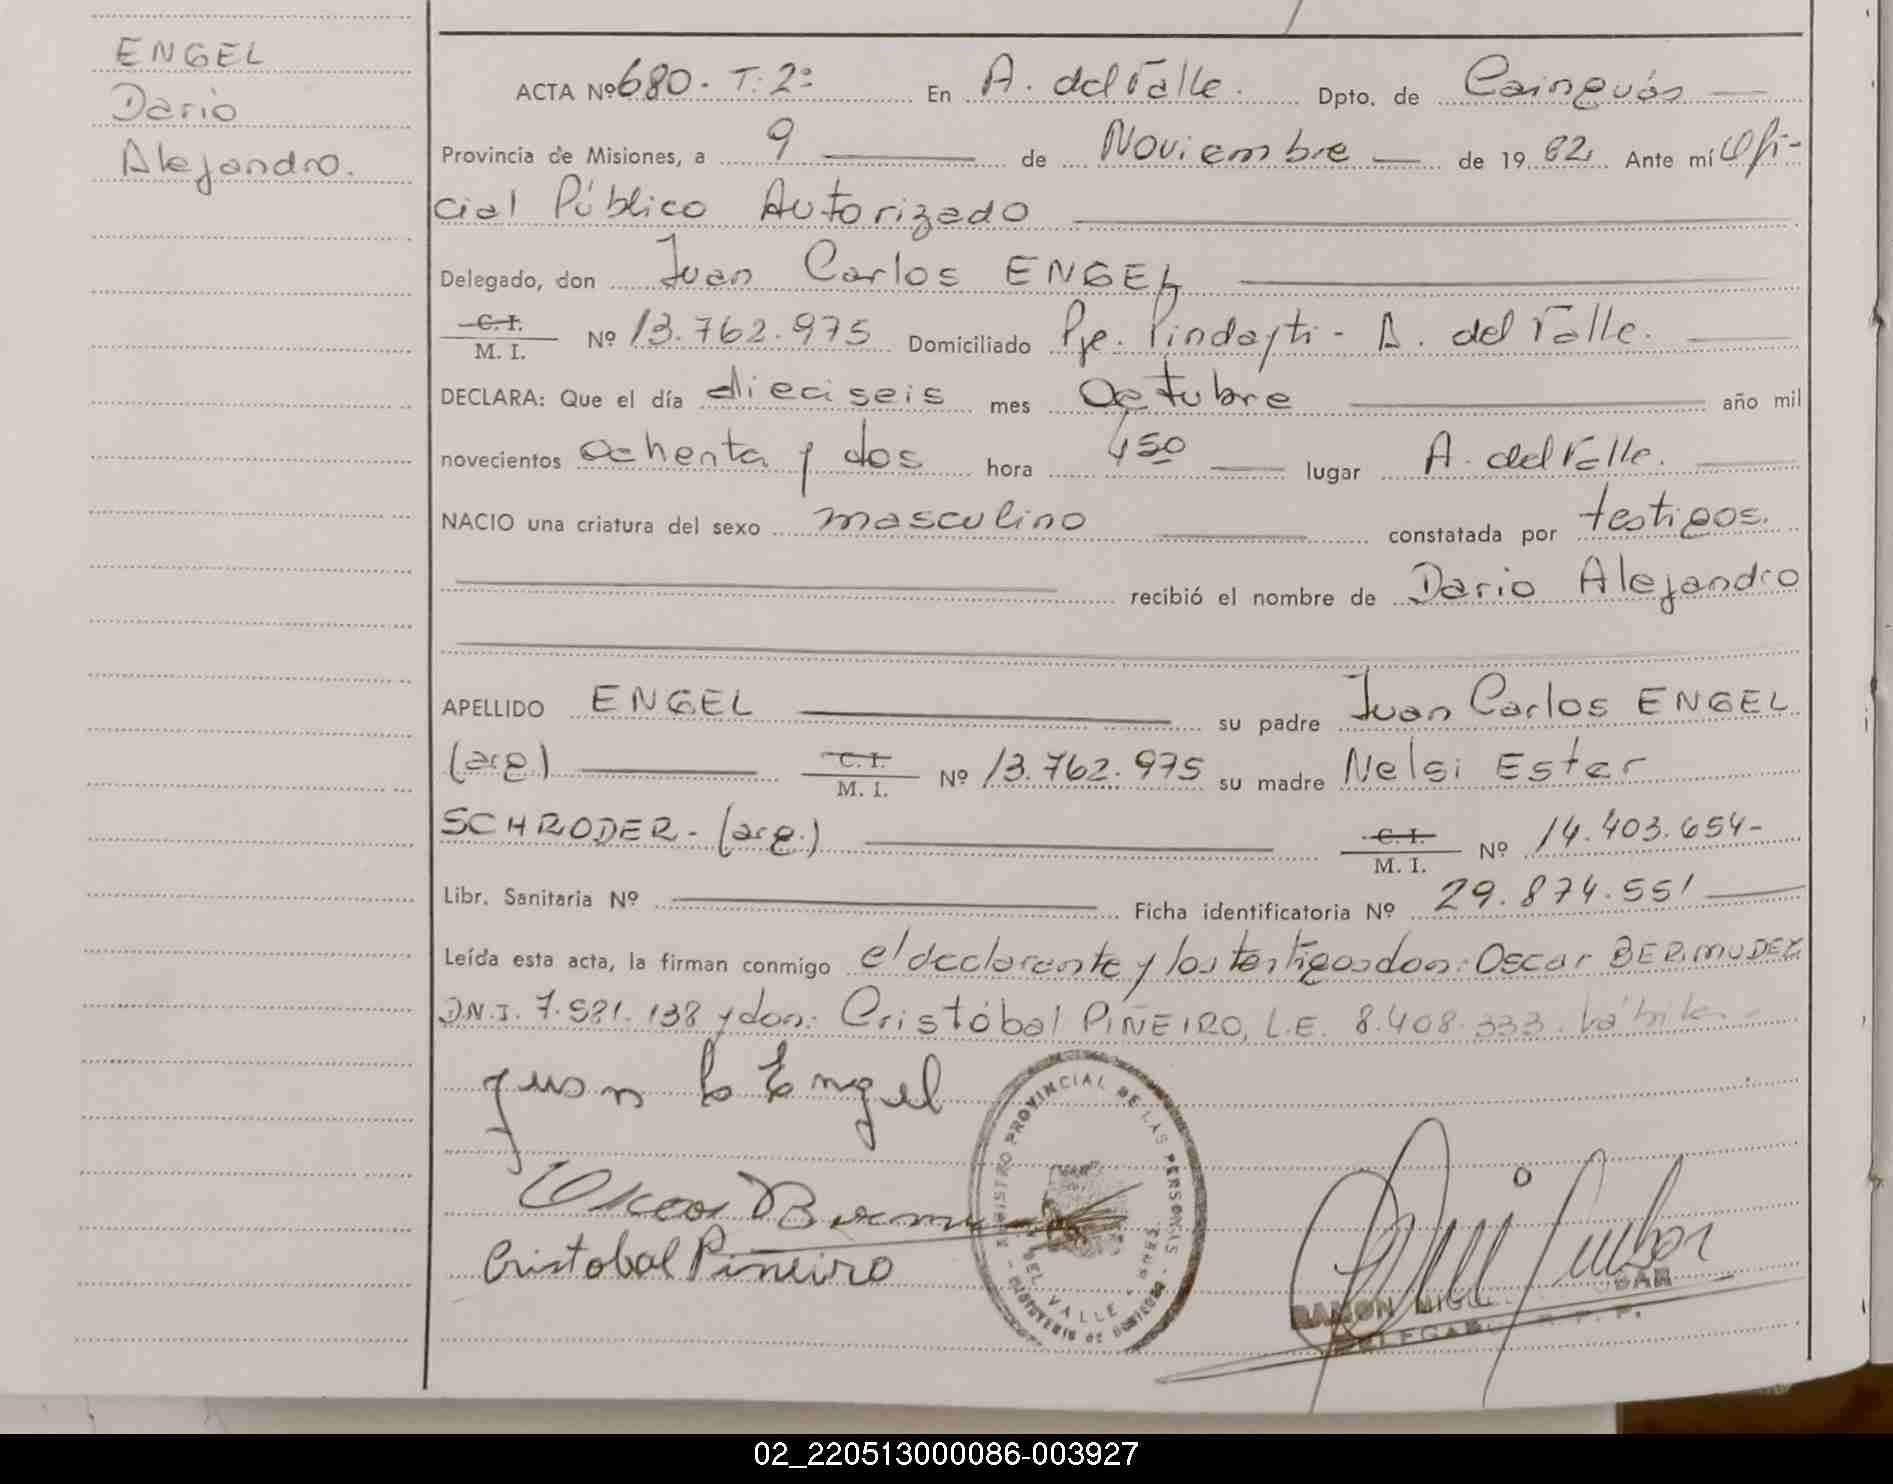 ENGEL
Dario
Alejandro.
ACTA Nº 680. T: 2º En A. del Valle. Dpto. de Cainguás
Provincia de Misiones, a 9 de Noviembre de 19 82 Ante mí Ofi-
cial Público Autorizado
Delegado, don Juan Carlos ENGEL
C. I. M. I. Nº 13.762.975 Domiciliado Pje. Pindayti - A. del Valle.
DECLARA: Que el día dieciseis mes Octubre año mil
novecientos ochenta y dos hora 450 lugar A. del Valle.
NACIO una criatura del sexo masculino constatada por testigos.
recibió el nombre de Dario Alejandro
APELLIDO ENGEL su padre Juan Carlos ENGEL
(arg) C. I. M. I. Nº 13.762.975 su madre Nelsi Ester
SCHRODER - (arg.) C. I. M. I. Nº 14.403.654-
Libr. Sanitaria Nº Ficha identificatoria Nº 29.874.551
Leída esta acta, la firman conmigo el declarante y los testigos don: Oscar BERMUDEZ
D.N.I. 7.581.138 y don: Cristóbal PIÑEIRO, L.E. 8.408.333. hábiles -
Juan C Engel
REGISTRO PROVINCIAL DE LAS PERSONAS
DEL VALLE
MINISTERIO DE GOBIERNO
Oscar Bermu
Cristobal Piñeiro
RAMON MIGUEL
DELEGADO R. P. P.
02_220513000086-003927